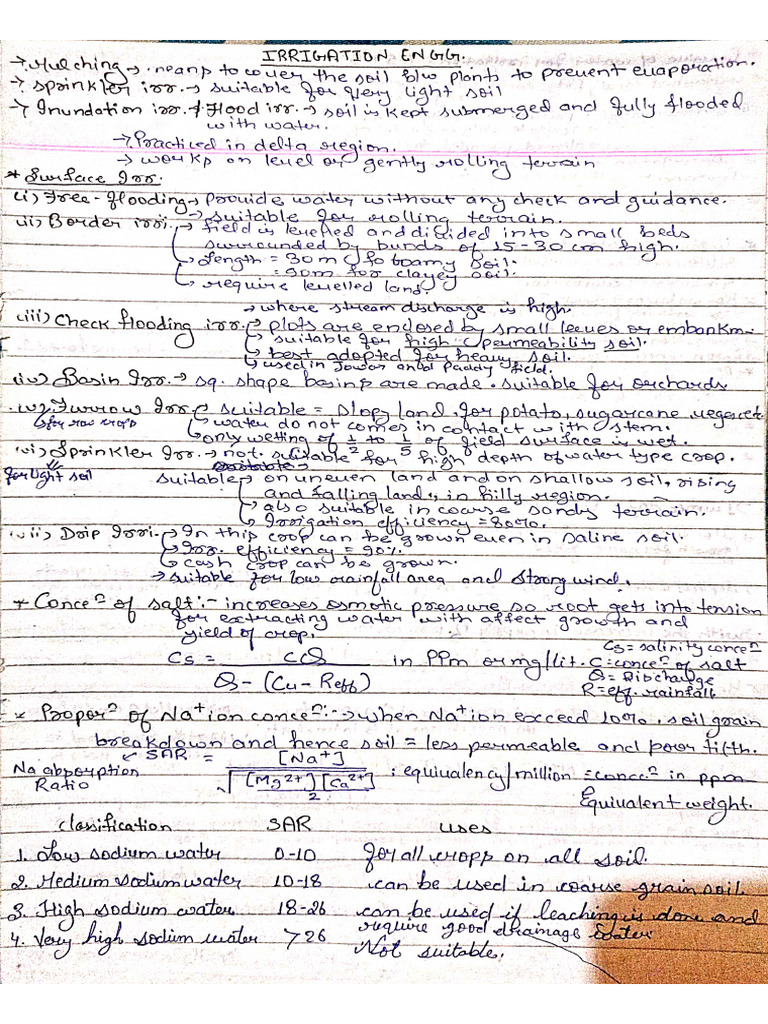 IRRIGATION ENGG.
→ Mulching → means to cover the soil b/w plants to prevent evaporation.
→ Sprinkler irr. → suitable for very light soil
→ Inundation irr. / Flood irr. → soil is kept submerged and fully flooded
with water.
→ Practiced in delta region.
→ works on level or gently rolling terrain
* Surface Irr.
(i) Free-flooding → Provide water without any check and guidance.
→ suitable for rolling terrain.
(ii) Border irri. → field is levelled and divided into small beds
surrounded by bunds of 15-30 cm high.
→ Length = 30m for loamy soil.
= 90m for clayey soil.
→ require levelled land.
→ where stream discharge is high.
(iii) Check flooding irr. → plots are enclosed by small levees or embankm-
→ suitable for high permeability soil.
→ best adopted for heavy soil.
→ used in Jowar and Paddy field.
(iv) Basin Irr. → sq. shape basins are made. suitable for orchards
(v) Furrow Irr. → suitable = slopy land. for potato, sugarcane, veget etc
for row crops → water do not comes in contact with stem.
→ only wetting of 1/2 to 1/5 of field surface is wet.
(vi) Sprinkler Irr. → not suitable for high depth of water type crop.
for light soil
suitable → on uneven land and on shallow soil, rising
and falling land, in hilly region.
→ also suitable in coarse sandy terrain.
→ Irrigation efficiency = 80%.
(vii) Drip Irri. → In this crop can be grown even in saline soil.
→ Irr. efficiency = 90%.
→ cash crop can be grown.
→ suitable for low rainfall area and strong wind.
* Concen of salt :- increases osmotic pressure so root gets into tension
for extracting water with affect growth and
yield of crop.
Cs = CQ / Q - (Cu - Reff) in PPm or mg/lit.
Cs = salinity concen
C = concen of salt
Q = Discharge
R = eff. rainfall
* Proporn of Na+ ion concen :- → when Na+ ion exceed 10%, soil grain
breakdown and hence soil = less permeable and poor tilth.
SAR = [Na+] / √([Mg2+][Ca2+] / 2) : equivalency/million = concen in ppm / Equivalent weight.
Na absorption
Ratio
classification SAR uses
1. Low sodium water 0-10 for all crops on all soil.
2. Medium sodium water 10-18 can be used in coarse grain soil
3. High sodium water 18-26 can be used if leaching is done and
require good drainage
4. Very high sodium water >26 Not suitable.